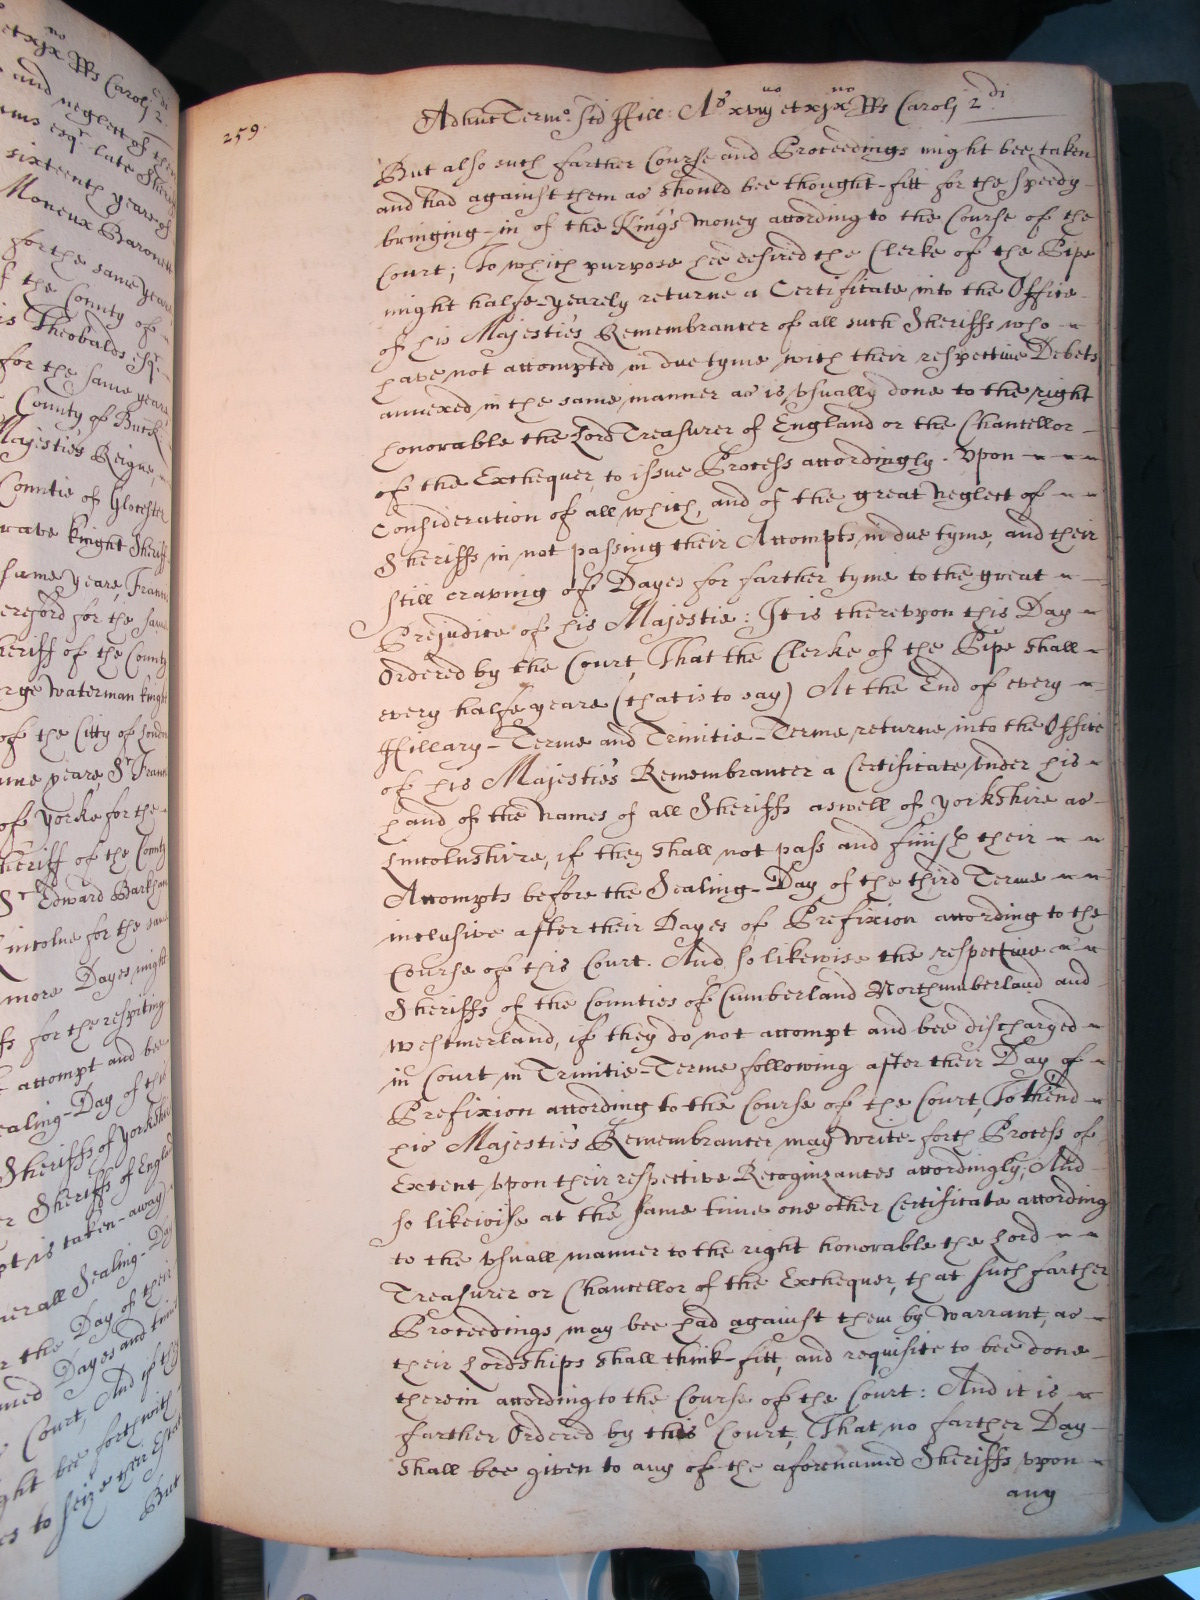 et xjx no RRs Caroli 2 di
and neglect of them
Esqr. late Sheriff
sixteenth yeare of
Moneux Baronett
for the same yeare
of the County of
Theobalds Esqr.
for the same yeare
County of Buck
Majesties Reigne,
Countie of Glocester
knight Sheriff
same yeare, Francis
ereford for the same
heriff of the County
rge Waterman knight
of the Citty of London
ame yeare, Sr. Francis
of Yorke for the
heriff of the County
Sr. Edward Barkham
Lincolne for the same
more Dayes might
for the respiting
attompt and bee
ealing-Day of the
Sheriffs of Yorkshire
er Sheriffs of England
pt is taken-away
erall Sealing-Day
r the Day of their
med Dayes and times
Court, And if they
ght bee forthwith
es to seize their Estates
But
259.
Adhuc Termo. Sti Hill: Ao. xviij no et xjx no RRs Caroli 2 di
But also such farther Course and Proceedings might bee taken
and had against them as should bee thought-fitt for the speedy
bringing-in of the King's money according to the Course of the
Court; To which purpose hee desired the Clerke of the Pipe
might halfe-yearely returne a Certificate into the Office
of his Majesties Remembrancer of all such Sheriffs who
have not attompted in due tyme with their respective Debets
annexed, in the same manner as is vsually done to the right
honorable the Lord Treasurer of England or the Chancellor
of the Exchequer, to issue Process accordingly. Vpon
Consideration of all which, and of the great Neglect of
Sheriffs in not passing their Attompts in due tyme, and their
still craving of Dayes for farther tyme to the great
Prejudice of his Majestie: It is therevpon this Day
Ordered by the Court, That the Clerke of the Pipe shall
every halfe yeare (that is to say) At the End of every
Hillary-Terme and Trinitie-Terme returne into the Office
of his Majesties Remembrancer a Certificate vnder his
hand of the Names of all Sheriffs aswell of Yorkshire as
Lincolnshire, if they shall not pass and finish their
Attompts before the Sealing-Day of the third Terme
inclusive after their Dayes of Prefixion according to the
Course of this Court. And so likewise the respective
Sheriffs of the Counties of Cumberland Northumberland and
Westmerland, if they do not attompt and bee discharged
in Court in Trinitie-Terme following after their Day of
Prefixion according to the Course of the Court, To thend
his Majesties Remembrancer may write-forth Process of
Extent vpon their respective Recognizances accordingly; And
so likewise at the same time one other Certificate according
to the vsuall manner to the right honorable the Lord
Treasurer or Chancellor of the Exchequer, that such farther
Proceedings may bee had against them by Warrant, as
their Lordships shall think-fitt, and requisite to bee done
therein according to the Course of the Court: And it is
farther Ordered by this Court, That no farther Day
shall bee given to any of the aforenamed Sheriffs vpon
any